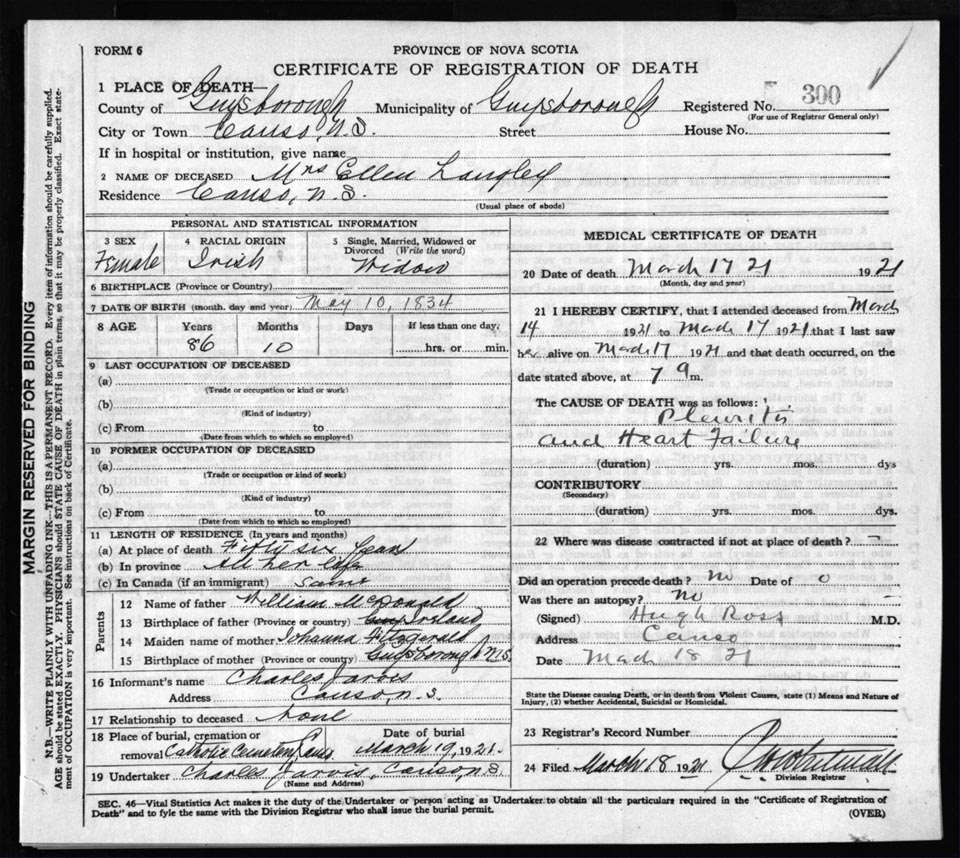 FORM 6
PROVINCE OF NOVA SCOTIA
CERTIFICATE OF REGISTRATION OF DEATH
1 PLACE OF DEATH—
County of Guysborough Municipality of Guysborough Registered No. 300
(For use of Registrar General only)
City or Town Canso, N.S. Street House No.
If in hospital or institution, give name
2 NAME OF DECEASED Mrs Ellen Langley
Residence Canso, N.S.
(Usual place of abode)
PERSONAL AND STATISTICAL INFORMATION
3 SEX 4 RACIAL ORIGIN 5 Single, Married, Widowed or Divorced (Write the word)
Female Irish Widow
6 BIRTHPLACE (Province or Country)
7 DATE OF BIRTH (month, day and year) May 10, 1834
8 AGE Years Months Days If less than one day,
86 10 hrs. or min.
9 LAST OCCUPATION OF DECEASED
(a)
(Trade or occupation or kind or work)
(b)
(Kind of industry)
(c) From to
(Date from which to which so employed)
10 FORMER OCCUPATION OF DECEASED
(a)
(Trade or occupation or kind of work)
(b)
(Kind of industry)
(c) From to
(Date from which to which so employed)
11 LENGTH OF RESIDENCE (In years and months)
(a) At place of death Fifty six years
(b) In province All her life
(c) In Canada (if an immigrant) same
Parents
12 Name of father William McDonald
13 Birthplace of father (Province or country) Ireland
14 Maiden name of mother Johanna Fitzgerald
15 Birthplace of mother (Province or country) Guysborough N.S.
16 Informant's name Charles Jarvis
Address Canso, N.S.
17 Relationship to deceased None
18 Place of burial, cremation or removal Catholic Cemetery Canso
Date of burial March 19, 1921
19 Undertaker Charles Jarvis, Canso, N.S.
(Name and Address)
MEDICAL CERTIFICATE OF DEATH
20 Date of death March 17 21 1921
(Month, day and year)
21 I HEREBY CERTIFY, that I attended deceased from March
14 1921 to Mach 17 1921 that I last saw
her alive on Mach 17 1921 and that death occurred, on the
date stated above, at 7 a m.
The CAUSE OF DEATH was as follows:
Pleuritis
and Heart Failure
(duration) yrs. mos. dys
CONTRIBUTORY
(Secondary)
(duration) yrs. mos. dys.
22 Where was disease contracted if not at place of death? —
Did an operation precede death? No Date of 0
Was there an autopsy? No —
(Signed) Hugh Ross M.D.
Address Canso
Date Mach 18 21
State the Disease causing Death, or in death from Violent Causes, state (1) Means and Nature of
Injury, (2) whether Accidental, Suicidal or Homicidal.
23 Registrar's Record Number
24 Filed March 18 1921
Division Registrar
SEC. 46—Vital Statistics Act makes it the duty of the Undertaker or person acting as Undertaker to obtain all the particulars required in the "Certificate of Registration of
Death" and to fyle the same with the Division Registrar who shall issue the burial permit.
(OVER)
MARGIN RESERVED FOR BINDING
N.B.—WRITE PLAINLY WITH UNFADING INK—THIS IS A PERMANENT RECORD. Every item of information should be carefully supplied.
AGE should be stated EXACTLY. PHYSICIANS should STATE CAUSE OF DEATH in plain terms, so that it may be properly classified. Exact state-
ment of OCCUPATION is very important. See instructions on back of Certificate.